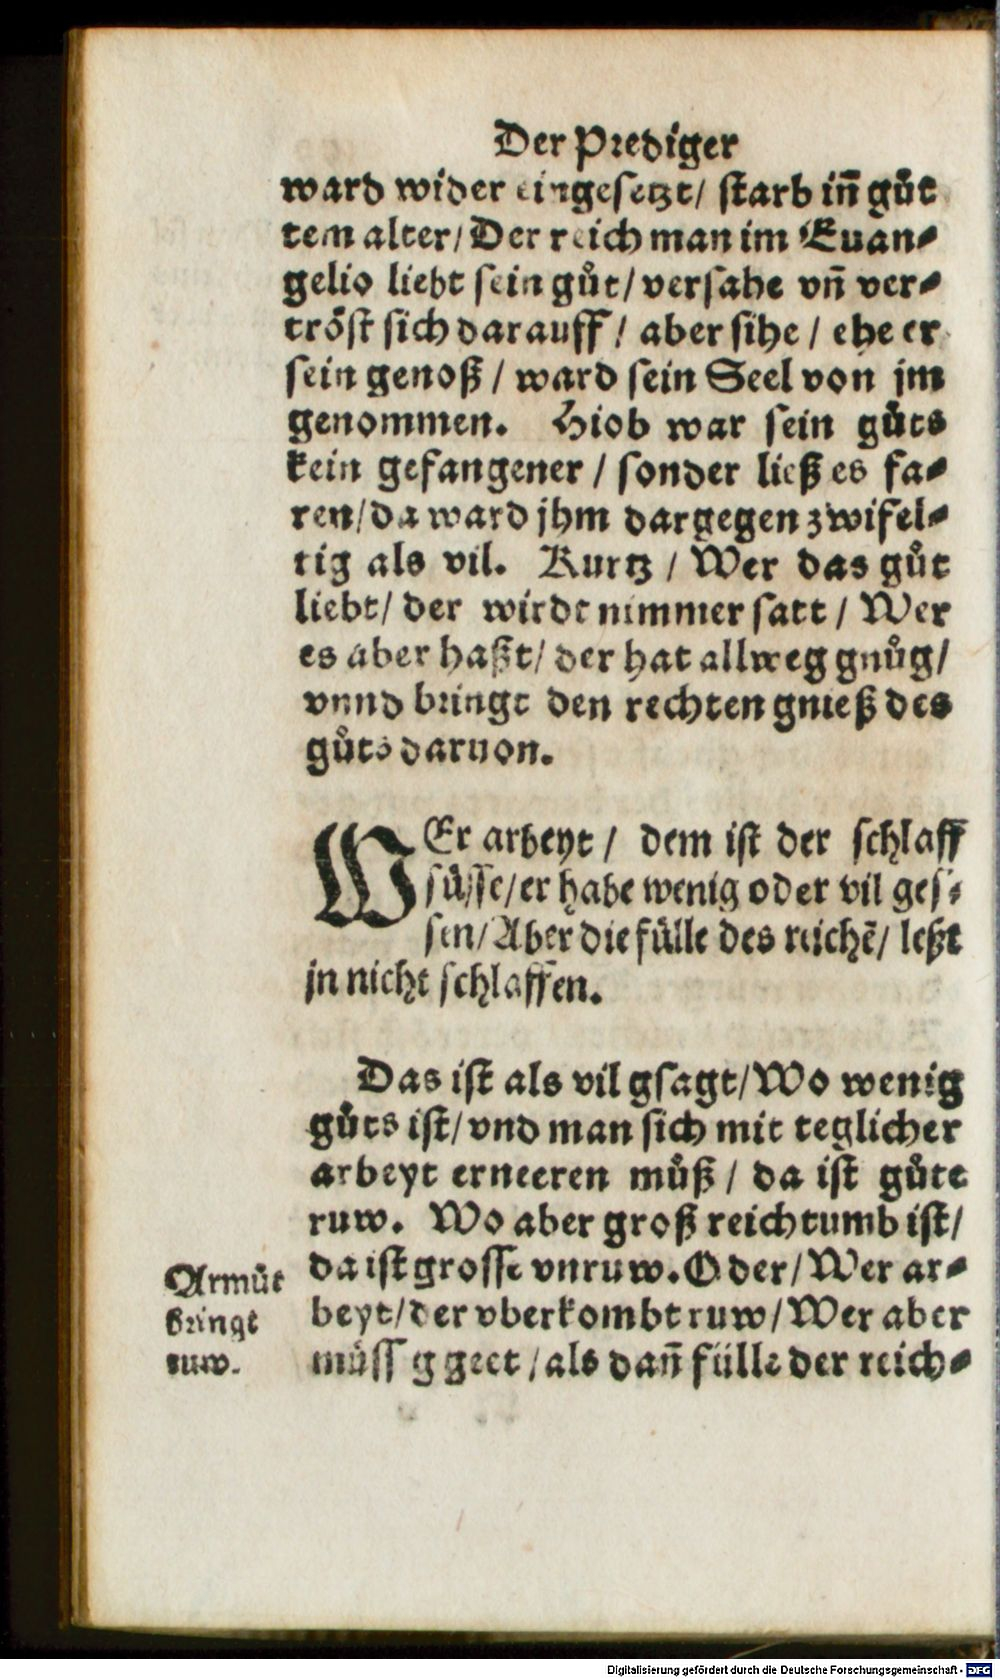 Der Prediger
ward wider eingesetzt/ starb inn̄ gůt
tem alter/ Der reich man im Euan-
gelio liebt sein gůt/ versahe vn̄ ver-
tröst sich darauff/ aber sihe/ ehe er
sein genoß/ ward sein Seel von jm
genommen. Hiob war sein gůts
kein gefangener/ sonder ließ es fa-
ren/ da ward jhm dargegen zwifel-
tig als vil. Kurtz/ Wer das gůt
liebt/ der wirdt nimmer satt/ Wer
es aber haßt/ der hat allweg gnůg/
vnnd bringt den rechten gnieß des
gůts daruon.
WEr arbeyt/ dem ist der schlaff
süsse/ er habe wenig oder vil ges-
sen/ Aber die fülle des reichē/ leßt
jn nicht schlaffen.
Das ist als vil gsagt/ Wo wenig
gůts ist/ vnd man sich mit teglicher
arbeyt erneeren můß/ da ist gůte
ruw. Wo aber groß reichtumb ist/
da ist grosse vnruw. Oder/ Wer ar-
beyt/ der vberkombt ruw/ Wer aber
müssig geet/ als dan̄ fülle der reich-
Armůt
bringt
ruw.
Digitalisierung gefördert durch die Deutsche Forschungsgemeinschaft - DFG